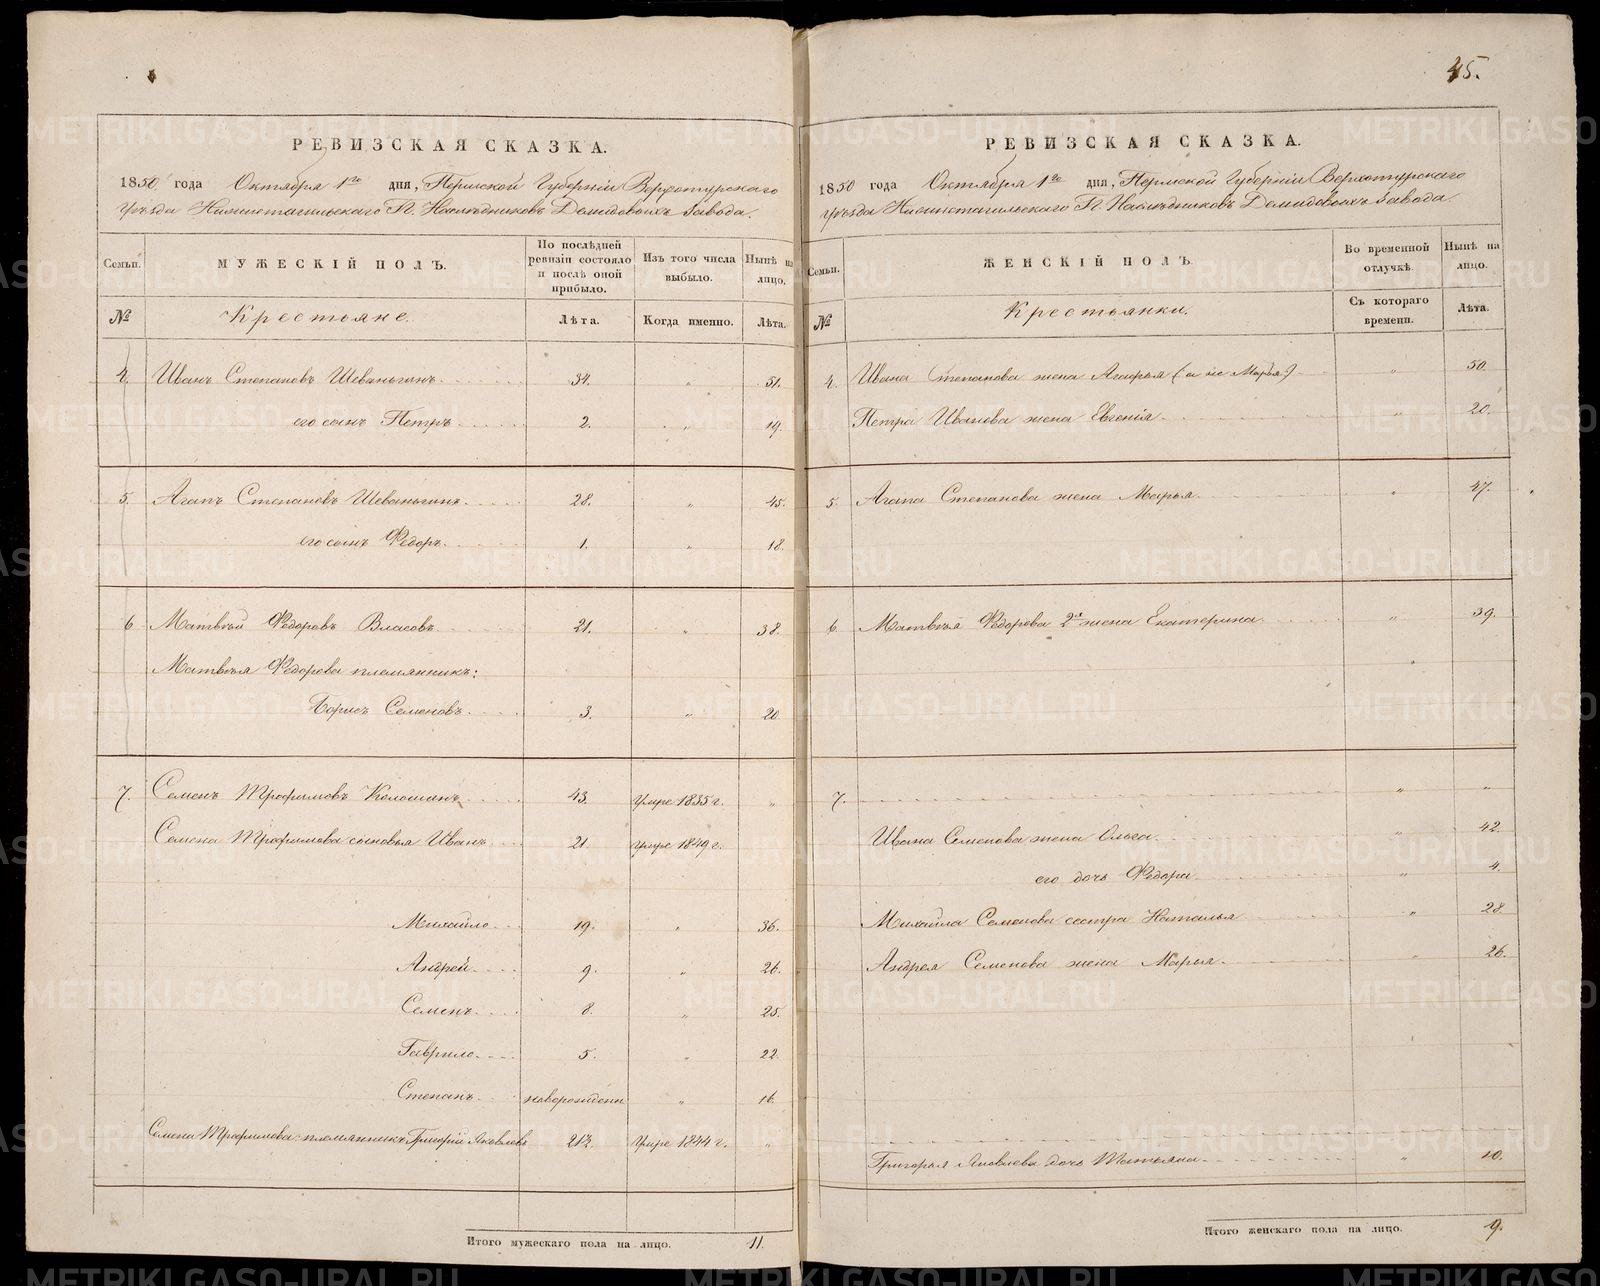 45.
РЕВИЗСКАЯ СКАЗКА.
1850 года Октября 1го дня, Пермской Губерніи Верхотурскаго
уѣзда Нижнетагильскаго Гг. Наслѣдниковъ Демидовыхъ Завода.
Семьи. МУЖЕСКІЙ ПОЛЪ. По послѣдней ревизіи состояло и послѣ оной прибыло. Изъ того числа выбыло. Нынѣ на лицо.
№ Крестьяне. Лѣта. Когда именно. Лѣта.
4. Иванъ Степановъ Шеваньгинъ 34. „ 51.
его сынъ Петръ 2. „ 19.
5. Агапъ Степановъ Шеваньгинъ 28. „ 45.
его сынъ Ѳедоръ 1. „ 18.
6 Матвѣй Ѳедоровъ Власовъ 21. „ 38.
Матвѣя Ѳедорова племянникъ:
Борисъ Семеновъ 3. „ 20.
7. Семенъ Трофимовъ Колошинъ 43. умре 1835 г. „
Семена Трофимова сыновья Иванъ 21. умре 1849 г.
Михайло 19. „ 36.
Андрей 9. „ 26.
Семенъ 8. „ 25.
Гаврило 5. „ 22.
Степанъ новорожденн „ 16.
Семена Трофимова племянникъ Григорій Яковлевъ 21½. умре 1844 г. „
Итого мужескаго пола на лицо. 11.
РЕВИЗСКАЯ СКАЗКА.
1850 года Октября 1го дня, Пермской Губерніи Верхотурскаго
уѣзда Нижнетагильскаго Гг. Наслѣдниковъ Демидовыхъ Завода.
Семьи. ЖЕНСКІЙ ПОЛЪ. Во временной отлучкѣ. Нынѣ на лицо.
№ Крестьянки. Съ котораго времени. Лѣта.
4. Ивана Степанова жена Агафья (а не Марья) „ 50.
Петра Иванова жена Евгенія „ 20.
5. Агапа Степанова жена Марья „ 47.
6. Матвѣя Ѳедорова 2я жена Екатерина „ 39.
7. „ „
Ивана Семенова жена Ольга „ 42.
его дочь Ѳедора „ 4.
Михайла Семенова сестра Наталья „ 28
Андрея Семенова жена Марья „ 26.
Григорья Яковлева дочь Татьяна „ 10.
Итого женскаго пола на лицо. 9.
METRIKI.GASO-URAL.RU